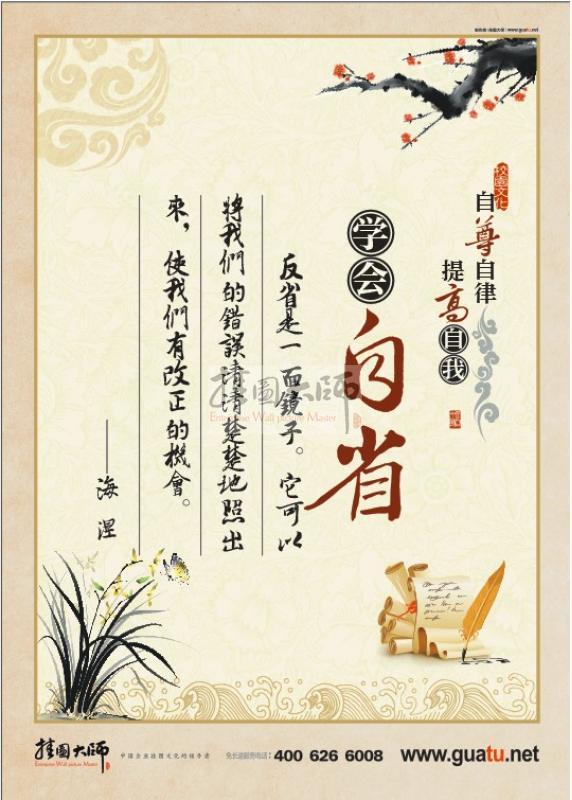 www.guatu.net
校园文化
自尊自律
提高自我
学会自省
反省是一面鏡子。它可以
將我們的錯誤清清楚楚地照出
來，使我們有改正的機會。
——海涅
挂圖大师
Enterprise Wall picture Master
挂圖大师
Enterprise Wall picture Master
中国企业挂图文化的领导者
免长途服务电话：400 626 6008
www.guatu.net